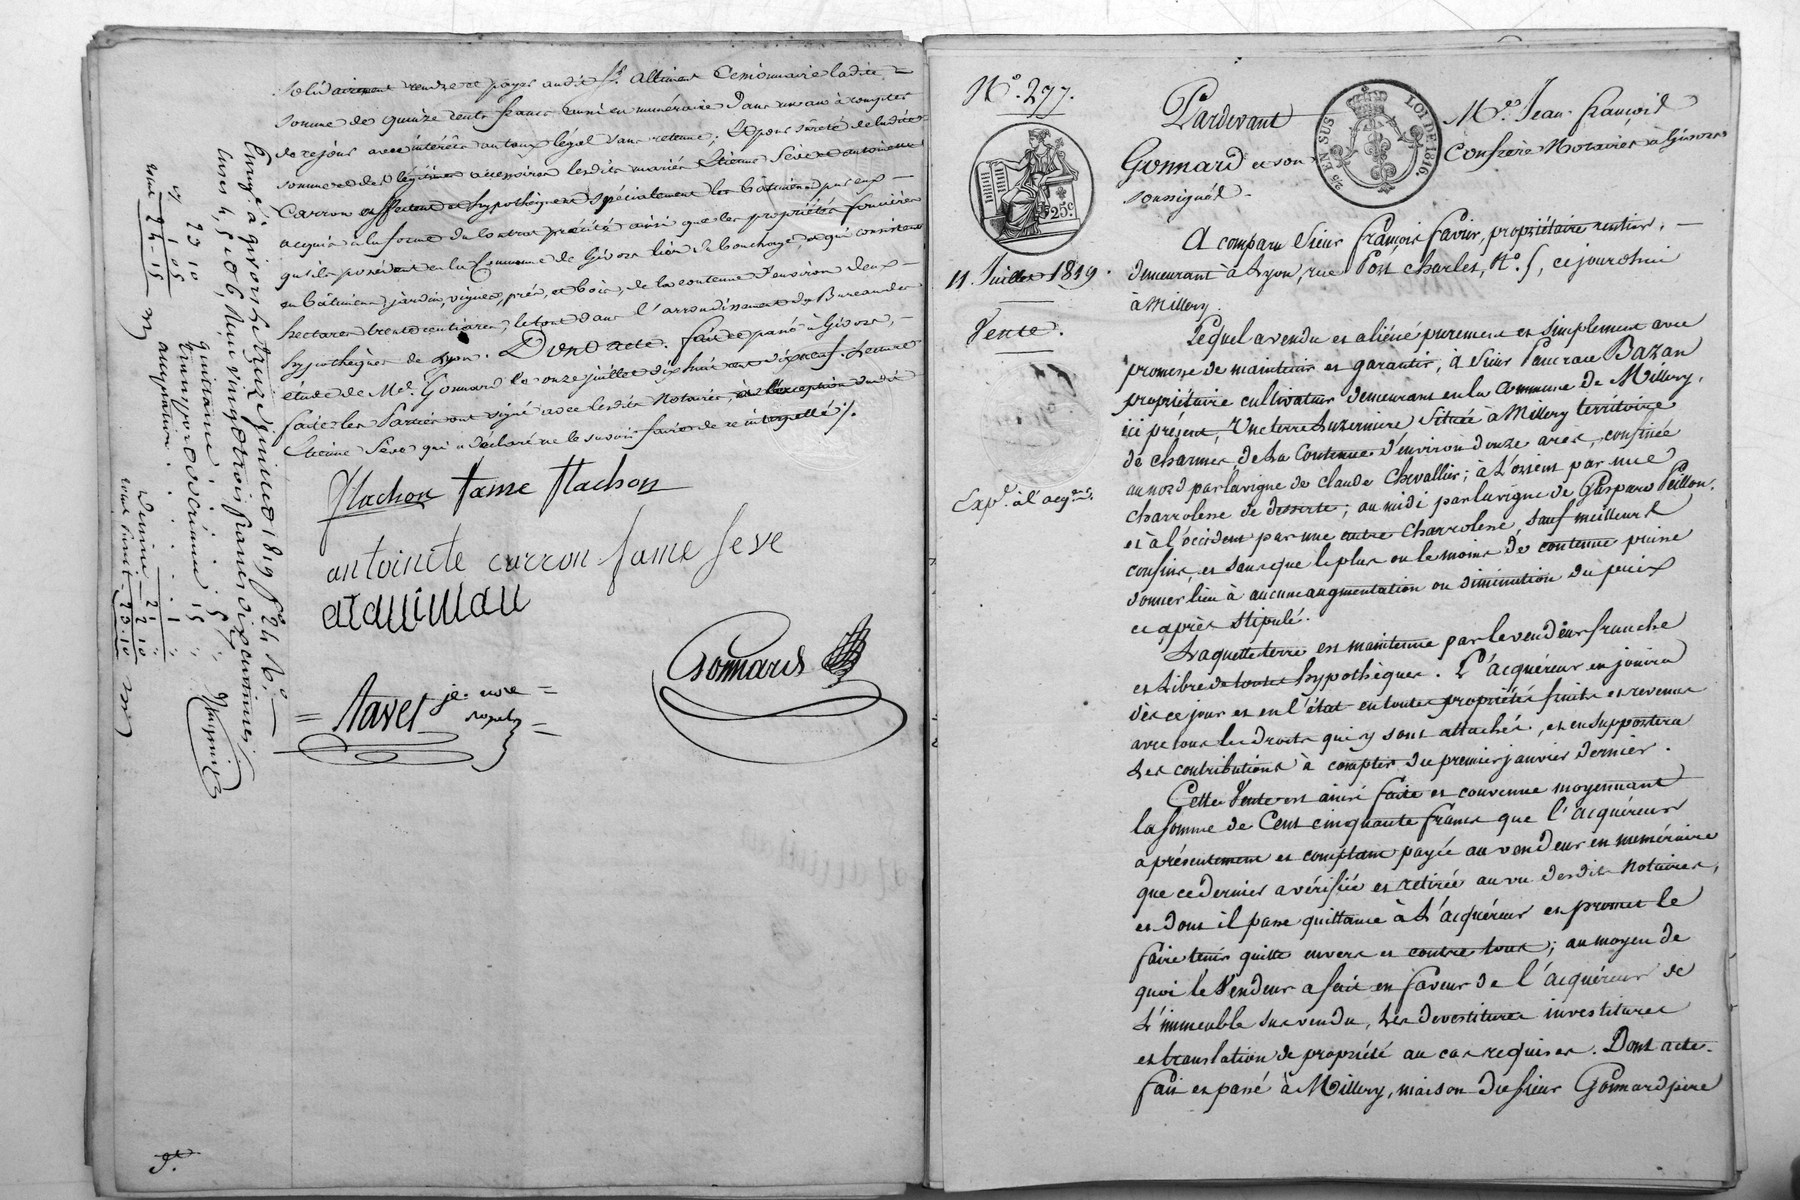 solidairement rendre et payer audit Sr. Altimens Cessionnaire ladite
somme de quinze cents francs aussi en numéraire dans un an à compter
de ce jour avec intérêts au taux légal sans retenue; Et pour sûreté de ladite
somme et des légitimes accessoires lesdits mariés Etienne Seve et antoinette
Carron affectent et hypothèquent spécialement les bâtiments par eux
acquis à la forme du contrat précité ainsi que les propriétés foncières
qu'ils possèdent en la Commune de Givors lieu de bouchage, et qui consistent
en bâtiments, jardin, vignes, prés, et bois, de la contenue d'environ deux
hectares trente centiares, le tout dans l'arrondissement du Bureau des
hypothèques de Lyon. Dont acte. fait et passé à Givors,
étude de Me. Gonnard le onze juillet dix huit cent dix neuf. Lecture
faite les Parties ont signé avec lesdits Notaires, à l'exception dudit
Etienne Seve qui a déclaré ne le savoir faire de ce interpellé ./.
flachon fame flachon
antoinete carron fame seve
Gonnard
Navet je. nore
royal
Enregé. à givors le treize juillet 1819 fo. 24 Ro.
cases 4, 5 et 6, Reçu vingt trois francs dix centimes
quittance
transport et créance 15
acceptation
23 10
1 05
24.15
Décime 2 10
23.10
No. 277.
25c
11. Juillet 1819.
Vente.
Expd. à l'acqr.
Pardevant Me. Jean-françois
5/6 EN SUS LOI DE 1816
Gonnard et son Confrère Notaires à Givors
soussignés
A comparu Sieur françois favier, propriétaire rentier,
demeurant à Lyon, rue Port Charles, No. 5, ce jourdhui
à Millery.
Lequel a vendu et aliéné purement et simplement avec
promesse de maintenir et garantir, à Sieur Pancrace Bazan
propriétaire cultivateur demeurant en la Commune de Millery,
ici présent, Une terre Luzernière Située à Millery territoire
de charmes de La Contenue d'environ douze ares, confinée
au nord par la vigne de Claude Chevallier; à L'orient par une
charrolesse de desserte; au midi par la vigne de Gaspard Peillon.
et à l'occident par une autre charrolesse, sauf meilleurs
confins, et sans que le plus ou le moins de contenue puisse
donner lieu à aucune augmentation ou diminution du prix
ci après stipulé.
Laquelle terre est maintenue par le vendeur franche
et Libre de toutes hypothèques. L'acquéreur en jouira
dès ce jour et en l'état en toutes propriétés fruits et revenus
avec tous les droits qui y sont attachés, et en supportera
Les contributions à compter du premier janvier dernier.
Cette Vente est ainsi faite et convenue moyennant
la somme de Cent cinquante francs que l'acquéreur
a présentement et comptant payée au vendeur en numéraire
que ce dernier a vérifiée et retirée au vu desdits Notaires,
et dont il passe quittance à L'acquéreur et promet le
faire tenir quitte envers et contre tous; au moyen de
quoi le Vendeur a fait en faveur de l'acquéreur de
L'immeuble sus vendu, Les devestitures investitures
et translation de propriété au cas requises. Dont acte.
fait et passé à Millery, maison du sieur Gonnard père